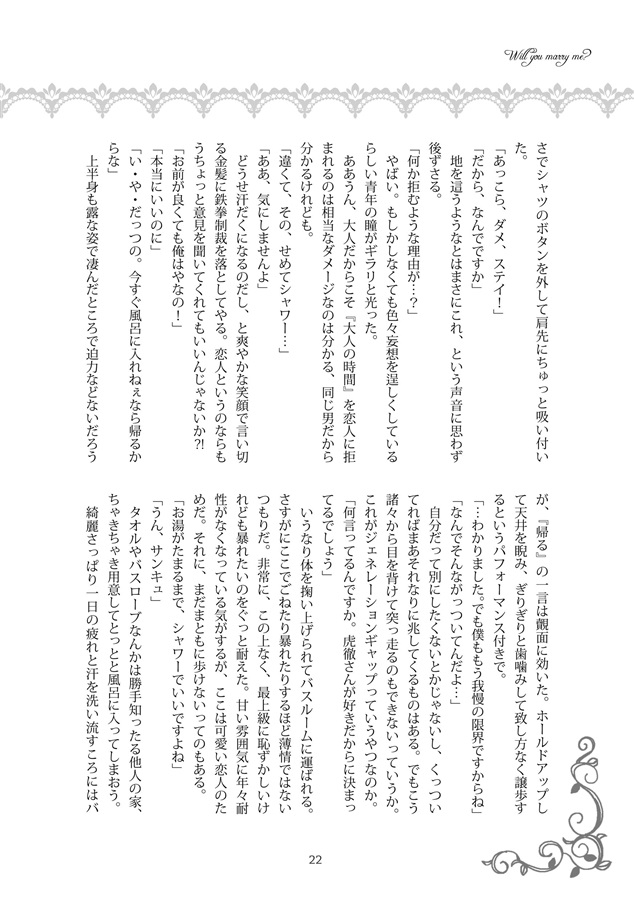 Will you marry me?
さでシャツのボタンを外して肩先にちゅっと吸い付い
た。
「あっこら、ダメ、ステイ！」
「だから、なんでですか」
地を這うようなとはまさにこれ、という声音に思わず
後ずさる。
「何か拒むような理由が…？」
やばい。もしかしなくても色々妄想を逞しくしている
らしい青年の瞳がギラリと光った。
ああうん、大人だからこそ『大人の時間』を恋人に拒
まれるのは相当なダメージなのは分かる、同じ男だから
分かるけれども。
「違くて、その、せめてシャワー…」
「ああ、気にしませんよ」
どうせ汗だくになるのだし、と爽やかな笑顔で言い切
る金髪に鉄拳制裁を落としてやる。恋人というのならも
うちょっと意見を聞いてくれてもいいんじゃないか?!
「お前が良くても俺はやなの！」
「本当にいいのに」
「い・や・だっつの。今すぐ風呂に入れねぇなら帰るか
らな」
上半身も露な姿で凄んだところで迫力などないだろう
が、『帰る』の一言は覿面に効いた。ホールドアップし
て天井を睨み、ぎりぎりと歯噛みして致し方なく譲歩す
るというパフォーマンス付きで。
「…わかりました。でも僕ももう我慢の限界ですからね」
「なんでそんながっついてんだよ…」
自分だって別にしたくないとかじゃないし、くっつい
てればまあそれなりに兆してくるものはある。でもこう
諸々から目を背けて突っ走るのもできないっていうか。
これがジェネレーションギャップっていうやつなのか。
「何言ってるんですか。虎徹さんが好きだからに決まっ
てるでしょう」
いうなり体を掬い上げられてバスルームに運ばれる。
さすがにここでごねたり暴れたりするほど薄情ではない
つもりだ。非常に、この上なく、最上級に恥ずかしいけ
れども暴れたいのをぐっと耐えた。甘い雰囲気に年々耐
性がなくなっている気がするが、ここは可愛い恋人のた
めだ。それに、まだまともに歩けないってのもある。
「お湯がたまるまで、シャワーでいいですよね」
「うん、サンキュ」
タオルやバスローブなんかは勝手知ったる他人の家、
ちゃきちゃき用意してとっとと風呂に入ってしまおう。
綺麗さっぱり一日の疲れと汗を洗い流すころにはバ
22